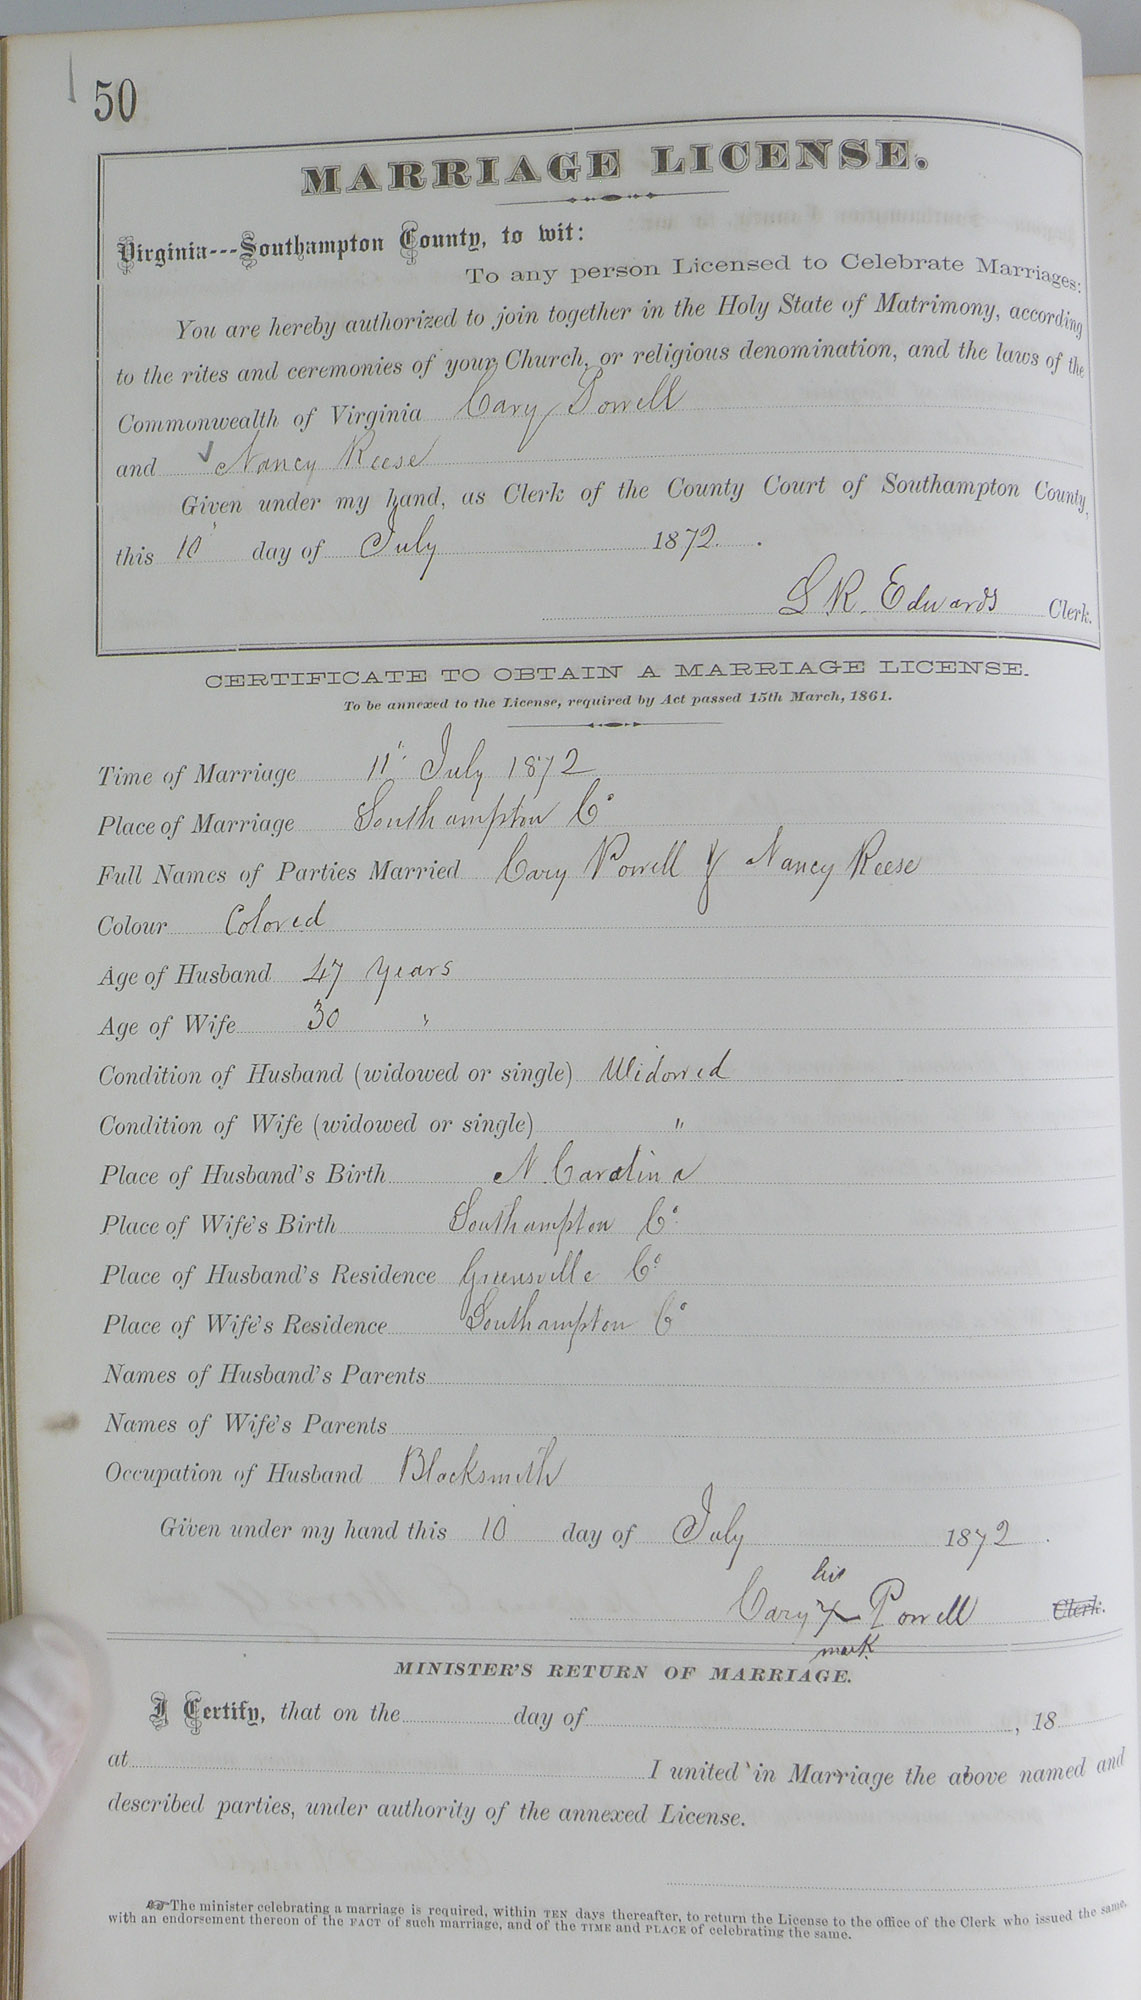 50
MARRIAGE LICENSE.
Virginia---Southampton County, to wit:
To any person Licensed to Celebrate Marriages:
You are hereby authorized to join together in the Holy State of Matrimony, according
to the rites and ceremonies of your Church, or religious denomination, and the laws of the
Commonwealth of Virginia Cary Powell
and Nancy Reese
Given under my hand, as Clerk of the County Court of Southampton County,
this 10" day of July 1872.
L R. Edwards Clerk.
CERTIFICATE TO OBTAIN A MARRIAGE LICENSE.
To be annexed to the License, required by Act passed 15th March, 1861.
Time of Marriage 11" July 1872
Place of Marriage Southampton Co
Full Names of Parties Married Cary Powell & Nancy Reese
Colour Colored
Age of Husband 47 years
Age of Wife 30 "
Condition of Husband (widowed or single) Widowed
Condition of Wife (widowed or single) "
Place of Husband's Birth N. Carolina
Place of Wife's Birth Southampton Co
Place of Husband's Residence Greensville Co
Place of Wife's Residence Southampton Co
Names of Husband's Parents
Names of Wife's Parents
Occupation of Husband Blacksmith
Given under my hand this 10 day of July 1872.
his
Cary X Powell Clerk.
mark
MINISTER'S RETURN OF MARRIAGE.
I Certify, that on the day of , 18
at I united in Marriage the above named and
described parties, under authority of the annexed License.
☞The minister celebrating a marriage is required, within TEN days thereafter, to return the License to the office of the Clerk who issued the same,
with an endorsement thereon of the FACT of such marriage, and of the TIME and PLACE of celebrating the same.